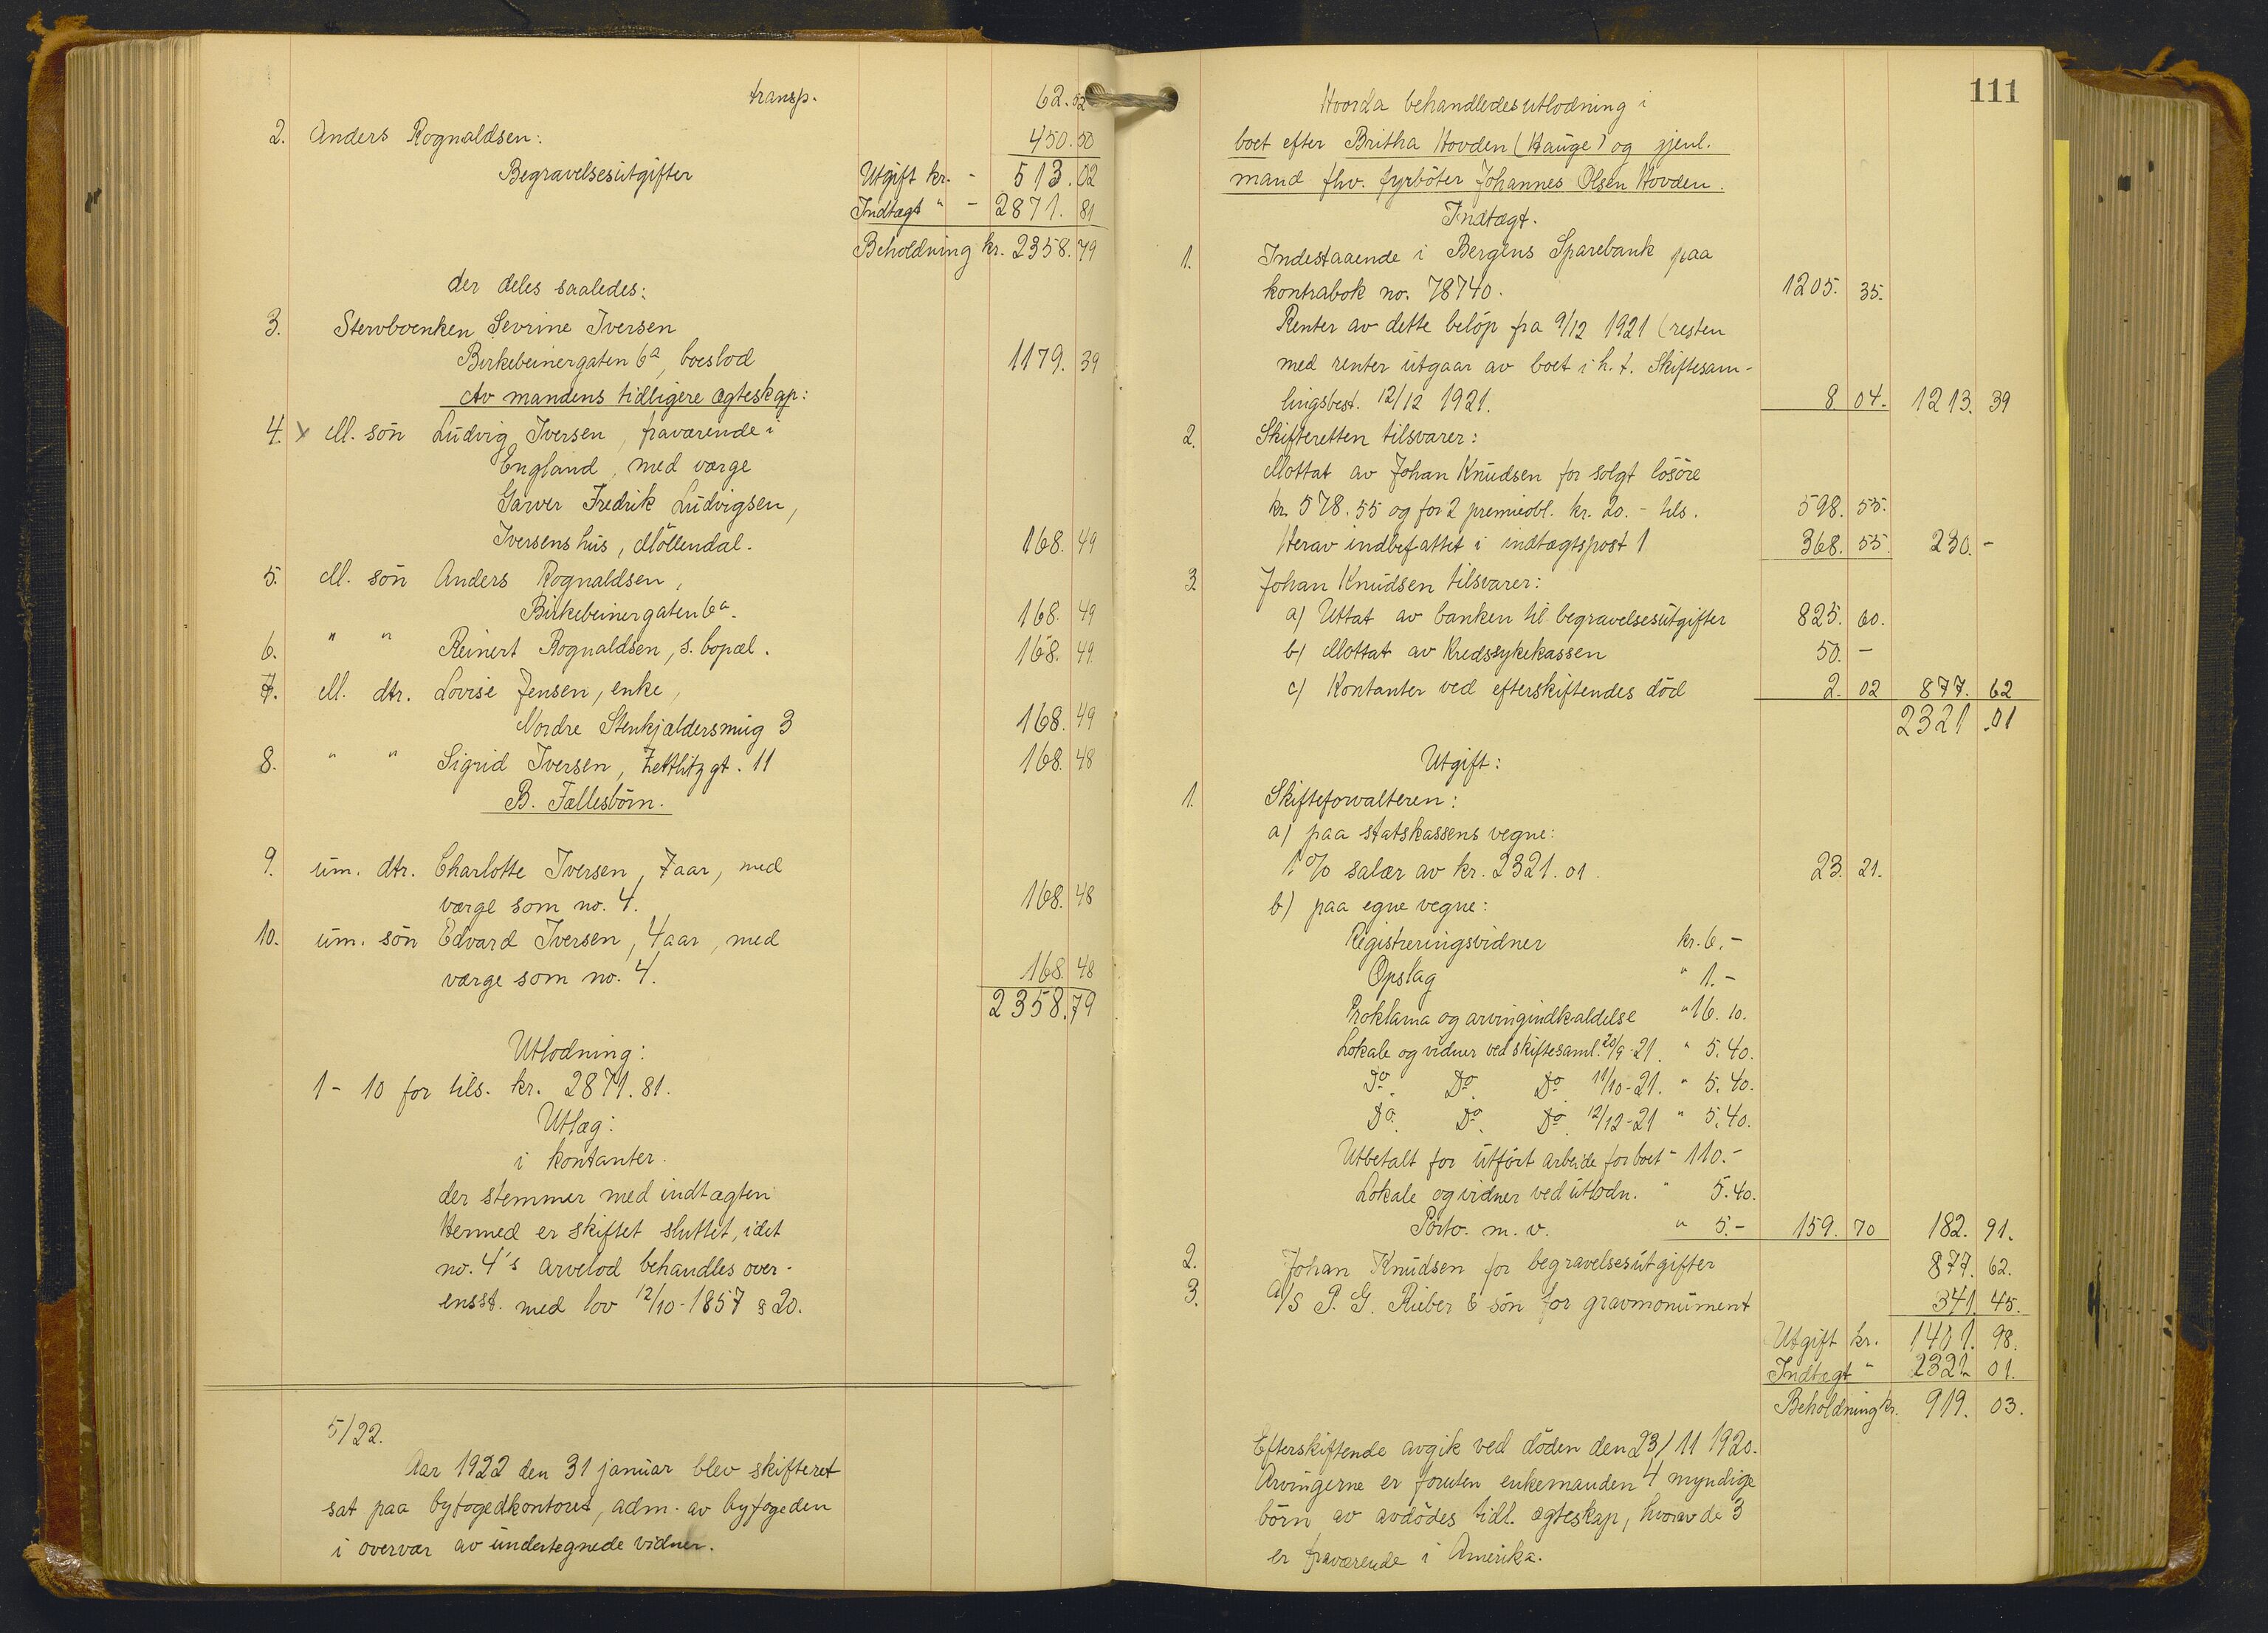 transp. 62.52
2. Anders Rognaldsen: 450.50
Begravelsesutgifter Utgift kr. - 513.02
Indtægt " - 2871.81
Beholdning kr. 2358.79
der deles saaledes:
3. Stervboenken Sevrine Iversen
Birkebeinergaten 6a, boeslod 1179.39
Av mandens tidligere ægteskap:
4. x M. søn Ludvig Iversen, fraværende i
England, med værge
Garver Fredrik Ludvigsen,
Iversens hus, Møllendal. 168.49
5. M. søn Anders Rognaldsen,
Birkebeinergaten 6a. 168.49
6. " " Reinert Rognaldsen, s. bopæl. 168.49
7. M. dtr. Lovise Jensen, enke,
Nordre Stenkjældersmug 3 168.49
8. " " Sigrid Iversen, Zettlitzgt. 11 168.48
B. Fællesbörn.
9. um. dtr. Charlotte Iversen, 7 aar, med
værge som no. 4. 168.48
10. um. søn Edvard Iversen, 4 aar, med
værge som no. 4. 168.48
2358.79
Utlodning:
1 - 10 for tils. kr. 2871.81.
Utlæg:
i kontanter.
der stemmer med indtægten
Hermed er skiftet sluttet, idet
no. 4's arvelod behandles over-
ensst. med lov 12/10-1857 § 20.
5/22.
Aar 1922 den 31 januar blev skifteret
sat paa byfogedkontoret, adm. av byfogeden
i overvær av undertegnede vidner.
111
Hvorda behandledes utlodning i
boet efter Britha Hovden (Hauge) og gjenl.
mand fhv. fyrböter Johannes Olsen Hovden.
Indtægt.
1. Indestaaende i Bergens Sparebank paa
kontrabok no. 78740. 1205.35.
Renter av dette beløp fra 9/12 1921 (resten
med renter utgaar av boet i h. t. Skiftesam-
lingsbest. 12/12 1921. 8 04. 1213.39
2. Skifteretten tilsvarer:
Mottat av Johan Knudsen for solgt lösöre
kr. 578.55 og for 2 premieobl. kr. 20.- tils. 598.55.
Herav indbefattet i indtægtspost 1 368.55. 230.-
3 Johan Knudsen tilsvarer:
a) Uttat av banken til begravelsesutgifter 825.60.
b) Mottat av Kredssykekassen 50.-
c) Kontanter ved efterskiftendes död 2.02 877.62
2321.01
Utgift:
1. Skifteforvalteren:
a) paa statskassens vegne:
1% salær av kr. 2321.01. 23.21.
b) paa egne vegne:
Registreringsvidner kr. 6.-
Opslag " 1.-
Proklama og arvingindkaldelse " 16.10.
Lokale og vidner ved skiftesaml. 20/9-21. " 5.40.
Do. Do. Do 11/10-21. " 5.40.
Do. Do. Do. 12/12-21 " 5.40.
Utbetalt for utfört arbeide for boet - 110.-
Lokale og vidner ved utlodn. " 5.40.
Porto. m. v. " 5.- 159.70 182.91.
2. Johan Knudsen for begravelsesutgifter 877.62.
3. A/S P. G. Rieber & sön for gravmonument 341.45.
Utgift kr. 1401.98.
Indtægt " 2321.01.
Beholdning kr. 919.03.
Efterskiftende avgik ved döden den 23/11 1920.
Arvingerne er foruten enkemanden 4 myndige
börn av avdödes tidl. ægteskap, hvorav de 3
er fraværende i Amerika.